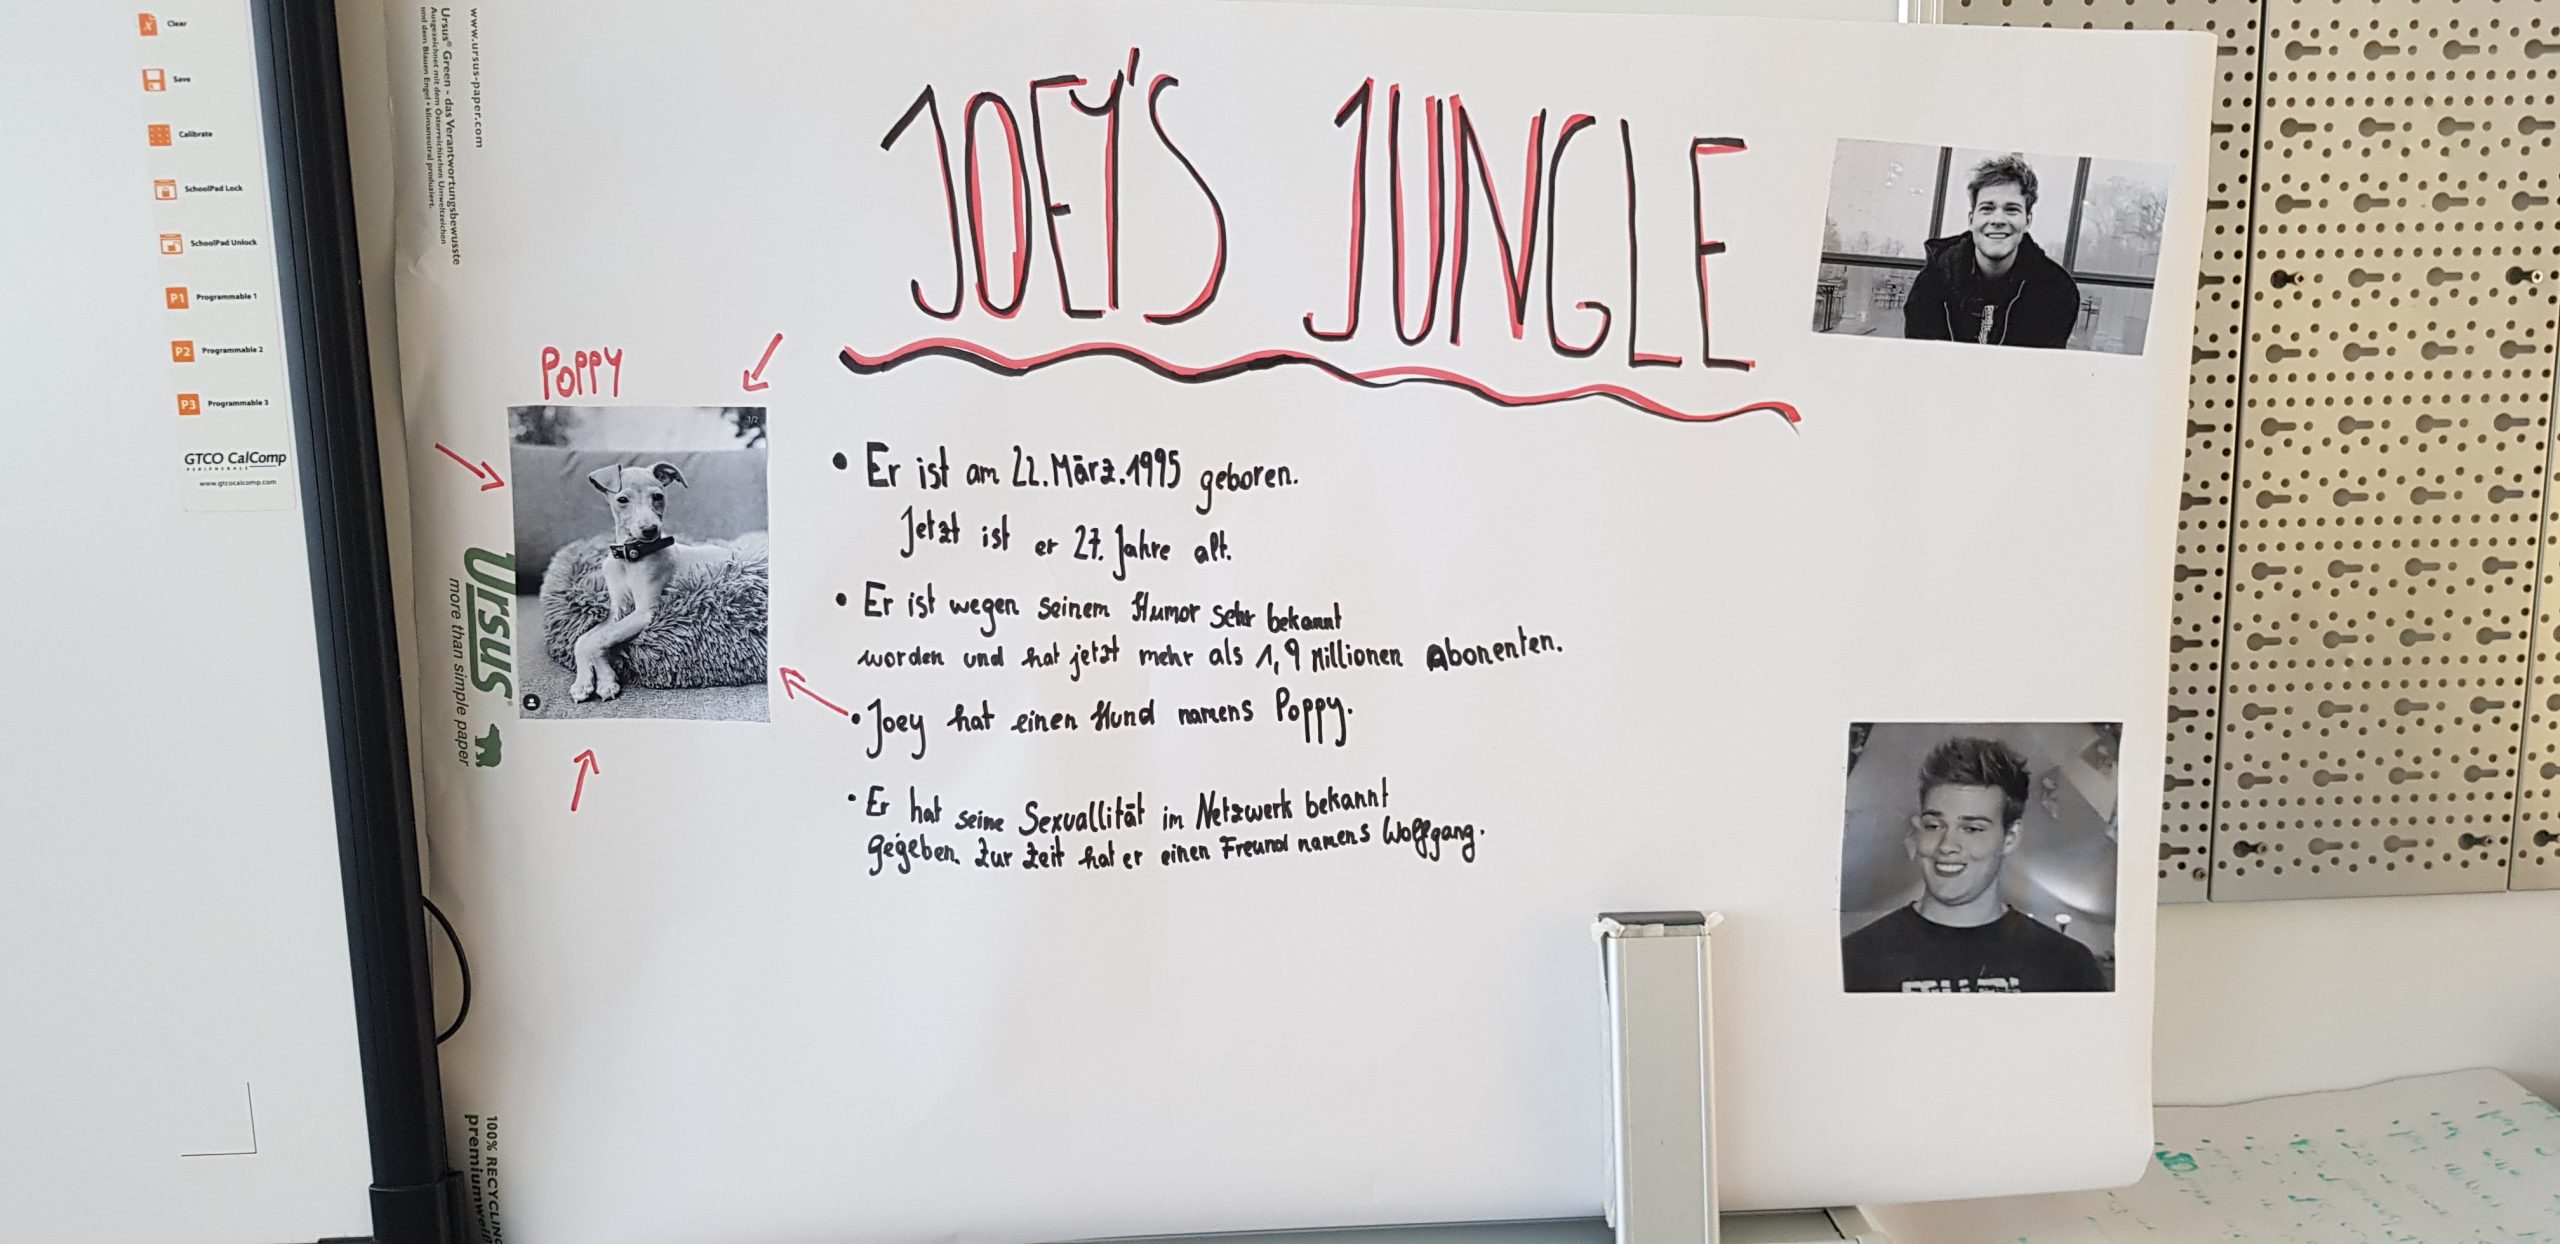 Clear
Save
Calibrate
SchoolPad Lock
SchoolPad Unlock
P1 Programmable 1
P2 Programmable 2
P3 Programmable 3
GTCO CalComp
PERIPHERALS
www.gtcocalcomp.com
www.ursus-paper.com
Ursus® Green - das Verantwortungsbewusste
Ausgezeichnet mit dem Österreichischen Umweltzeichen
und dem Blauen Engel • klimaneutral produziert.
Ursus®
more than simple paper
100% RECYCLING
premiumweiß
JOEY'S JUNGLE
POPPY
1/2
• Er ist am 22.März.1995 geboren.
Jetzt ist er 27. Jahre alt.
• Er ist wegen seinem Humor sehr bekannt
worden und hat jetzt mehr als 1,9 Millionen Abonenten.
• Joey hat einen Hund namens Poppy.
• Er hat seine Sexuallität im Netzwerk bekannt
gegeben. Zur Zeit hat er einen Freund namens Wolfgang.